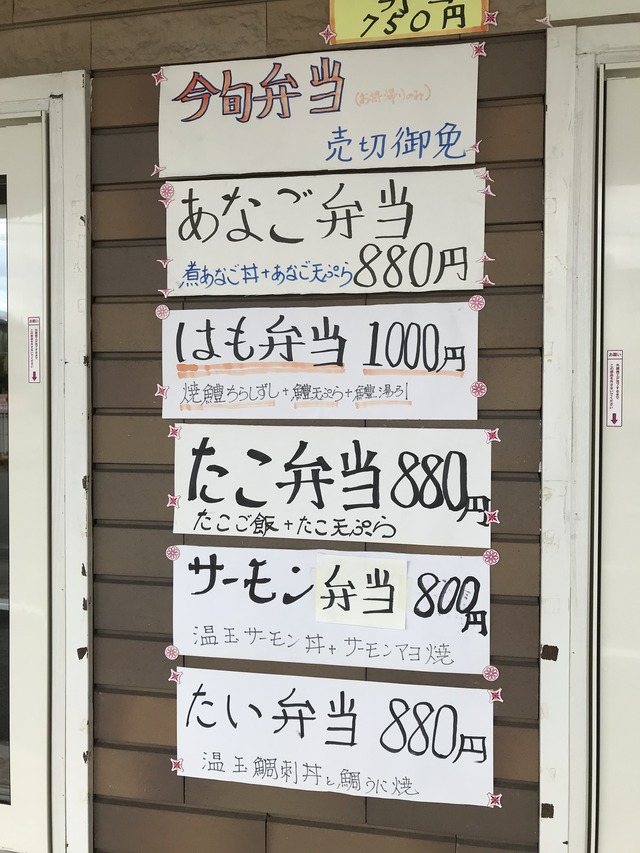 750円
今旬弁当
(お持帰りのみ)
売切御免
あなご弁当
煮あなご丼+あなご天ぷら 880円
はも弁当 1000円
焼鱧ちらしずし+鱧天ぷら+鱧湯引
たこ弁当 880円
たこご飯+たこ天ぷら
サーモン弁当 800円
温玉サーモン丼+サーモンマヨ焼
たい弁当 880円
温玉鯛刺丼と鯛うに焼
お願い
お願い